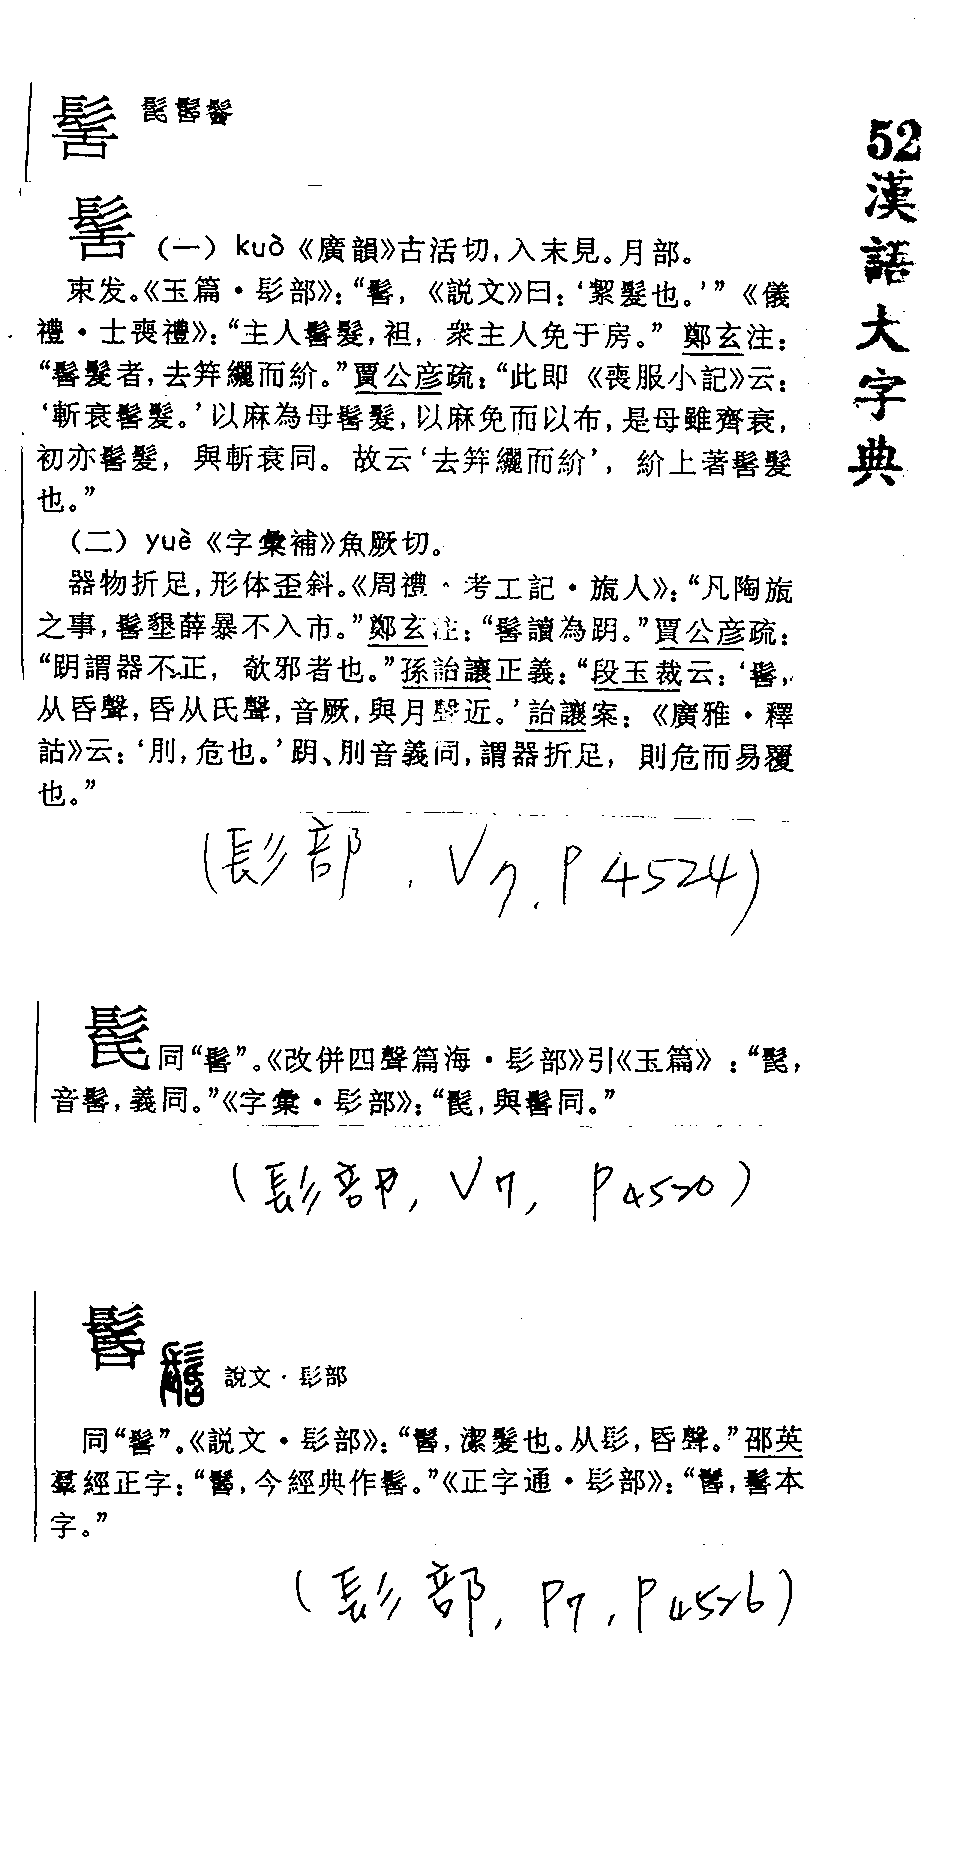 52漢語大字典
髺 髺
髺(一)kuò《廣韻》古活切,入末見。月部。
束发。《玉篇·髟部》:“髺,《説文》曰:‘絜髮也。’”《儀
禮·士喪禮》:“主人髺髮,袒,衆主人免于房。”鄭玄注:
“髺髮者,去笄纚而紒。”賈公彦疏:“此即《喪服小記》云:
‘斬衰髺髮。’以麻為母髺髮,以麻免而以布,是母雖齊衰,
初亦髺髮,與斬衰同。故云‘去笄纚而紒’,紒上著髺髮
也。”
(二)yuè《字彙補》魚厥切。
器物折足,形体歪斜。《周禮·考工記·瓬人》:“凡陶瓬
之事,髺墾薜暴不入市。”鄭玄注:“髺讀為跀。”賈公彦疏:
“跀謂器不正,欹邪者也。”孫詒讓正義:“段玉裁云:‘髺,
从昏聲,昏从氏聲,音厥,與月聲近。’詒讓案:《廣雅·釋
詁》云:‘刖,危也。’跀、刖音義同,謂器折足,則危而易覆
也。”
(髟部,V7,P4524)
同“髺”。《改併四聲篇海·髟部》引《玉篇》:“髺,
音髺,義同。”《字彙·髟部》:“,與髺同。”
(髟部,V7,P4520)
説文·髟部
同“髺”。《説文·髟部》:“,潔髮也。从髟,昏聲。”邵英
羣經正字:“,今經典作髺。”《正字通·髟部》:“,髺本
字。”
(髟部,P7,P4526)